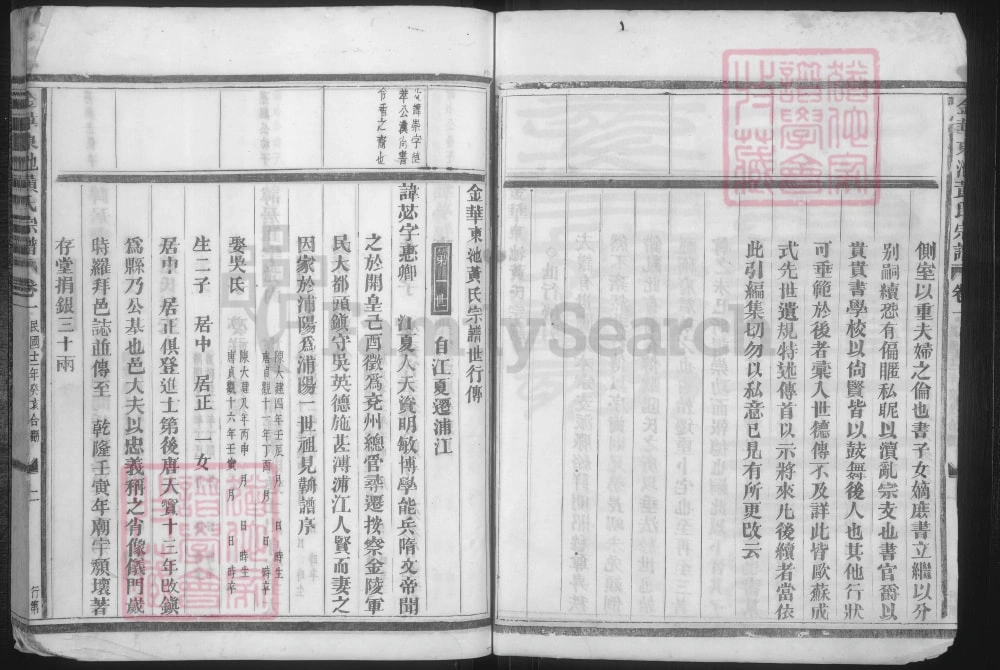 側室以重夫婦之倫也書子女嫡庶書立繼以分
別嗣續恐有偏暱私昵以瀆亂宗支也書官爵以
貴貴書學校以尚賢皆以鼓舞後人也其他行狀
可垂範於後者彙入世德傳不及詳此皆歐蘇成
式先世遺規特述傳首以示將來凡後續者當依
此引編集切勿以私意己見有所更改云
金華東池黃氏宗譜世行傳
第一世
自江夏遷浦江
諱苾字惠卿 江夏人天資明敏博學能兵隋文帝聞
之於開皇己酉徵爲兗州總管尋遷按察金陵軍
民大都頭鎭守吳英德施甚溥浦江人賢而妻之
因家於浦陽爲浦陽一世祖見勣譜序
陳大建四年壬辰 月 日 時生
唐貞觀十一年丁酉 月 日 時卒
娶吳氏
陳大建八年丙申 月 日 時生
唐貞觀十六年壬寅 月 日 時卒
生二子 居中 居正 一女
居中 居正俱登進士第後唐天寶十三年改鎭
爲縣乃公基也邑大夫以忠義稱之肖像儀門歲
時羅拜邑誌並傳至 乾隆壬寅年廟宇頹壞著
存堂捐銀三十兩
金華東池黃氏宗譜 卷一 民國十二年癸亥合鐫
行第
FamilySearch